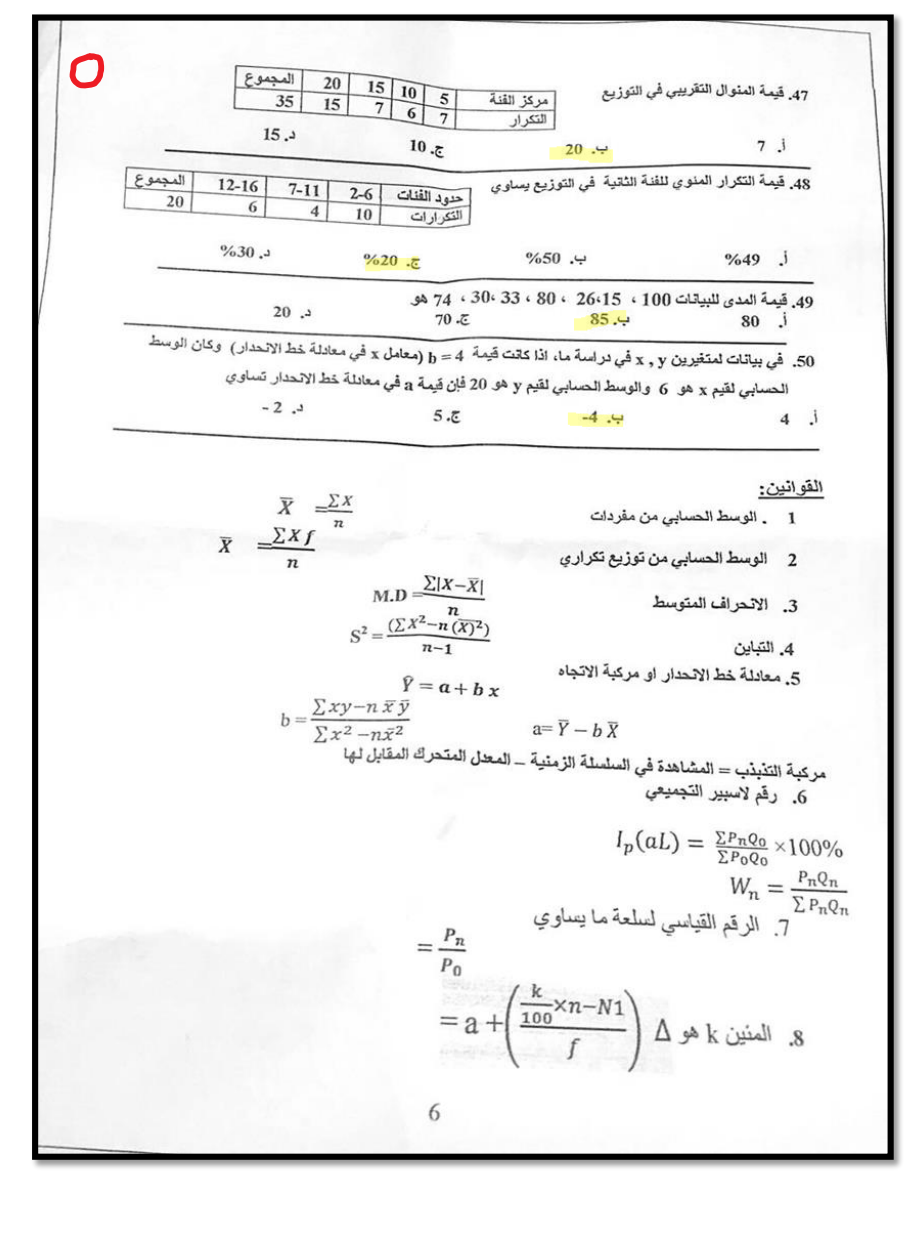 47. قيمة المنوال التقريبي في التوزيع
مركز الفئة 5 10 15 20 المجموع
التكرار 7 6 7 15 35
أ. 7 ب. 20 ج. 10 د. 15
48. قيمة التكرار المئوي للفئة الثانية في التوزيع يساوي
حدود الفئات 2-6 7-11 12-16 المجموع
التكرارات 10 4 6 20
أ. 49% ب. 50% ج. 20% د. 30%
49. قيمة المدى للبيانات 100 ، 26،15 ، 80 ، 33 ،30 ، 74 هو
أ. 80 ب. 85 ج. 70 د. 20
50. في بيانات لمتغيرين x , y في دراسة ما، اذا كانت قيمة b = 4 (معامل x في معادلة خط الانحدار) وكان الوسط
الحسابي لقيم x هو 6 والوسط الحسابي لقيم y هو 20 فإن قيمة a في معادلة خط الانحدار تساوي
أ. 4 ب. 4- ج. 5 د. 2 -
القوانين:
1 . الوسط الحسابي من مفردات X̅ = ∑X / n
2 الوسط الحسابي من توزيع تكراري X̅ = ∑X f / n
3. الانحراف المتوسط M.D = ∑|X−X̅| / n
4. التباين S² = (∑X²−n (X̅)²) / n−1
5. معادلة خط الانحدار او مركبة الاتجاه
Ŷ = a + b x
a= Y̅ − b X̅ b = ∑xy−n x̅ y̅ / ∑x² −nx̅²
مركبة التذبذب = المشاهدة في السلسلة الزمنية – المعدل المتحرك المقابل لها
6. رقم لاسبير التجميعي
Iₚ(aL) = ∑PₙQ₀ / ∑P₀Q₀ ×100%
Wₙ = PₙQₙ / ∑PₙQₙ
7. الرقم القياسي لسلعة ما يساوي
= Pₙ / P₀
8. المئين k هو = a + ((k/100 ×n−N1) / f) Δ
6